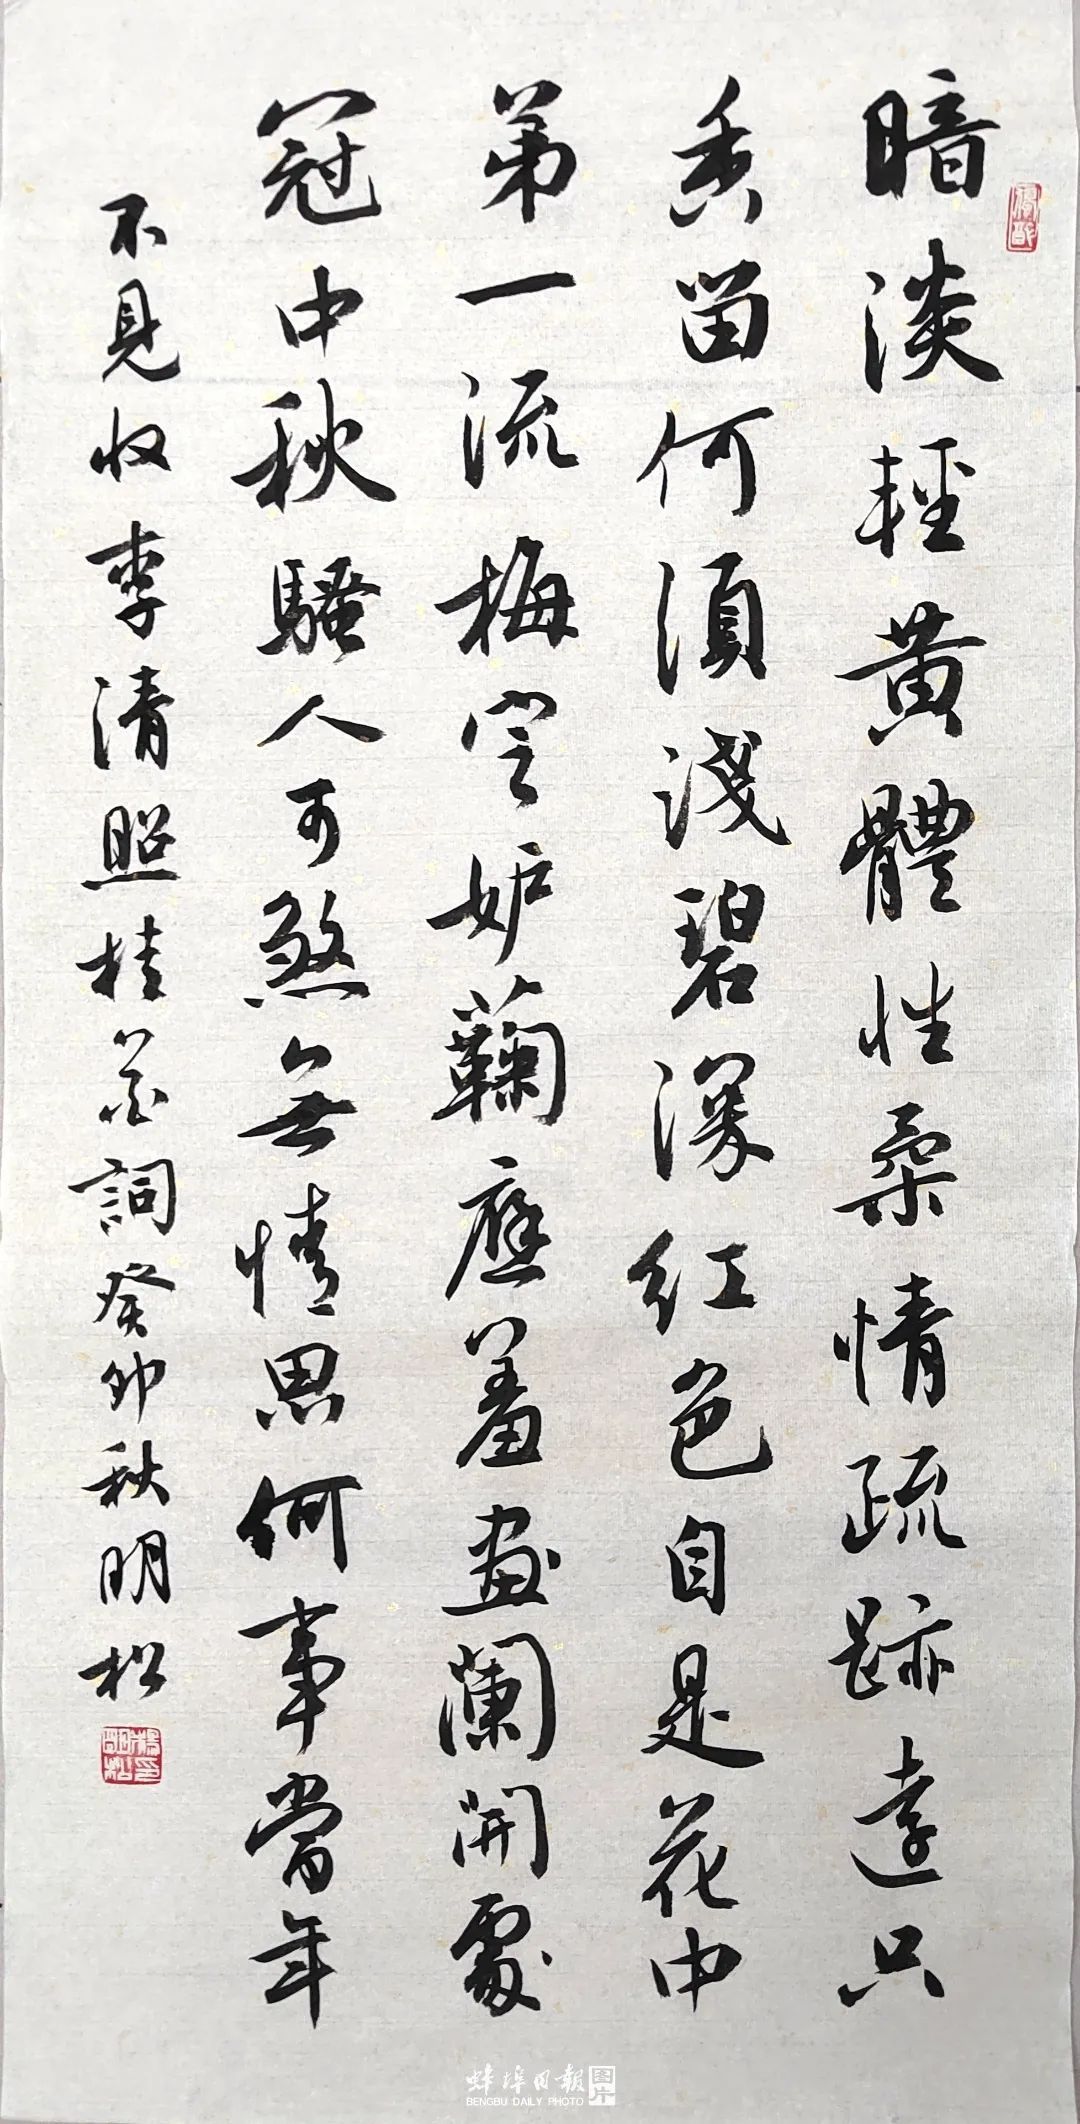 暗淡輕黄體性柔情疏跡遠只
香留何須淺碧深红色自是花中
第一流梅定妒菊應羞畫闌開處
冠中秋騷人可煞無情思何事當年
不見收 李清照桂花詞癸卯秋明松
蚌埠日報 图片
BENGBU DAILY PHOTO